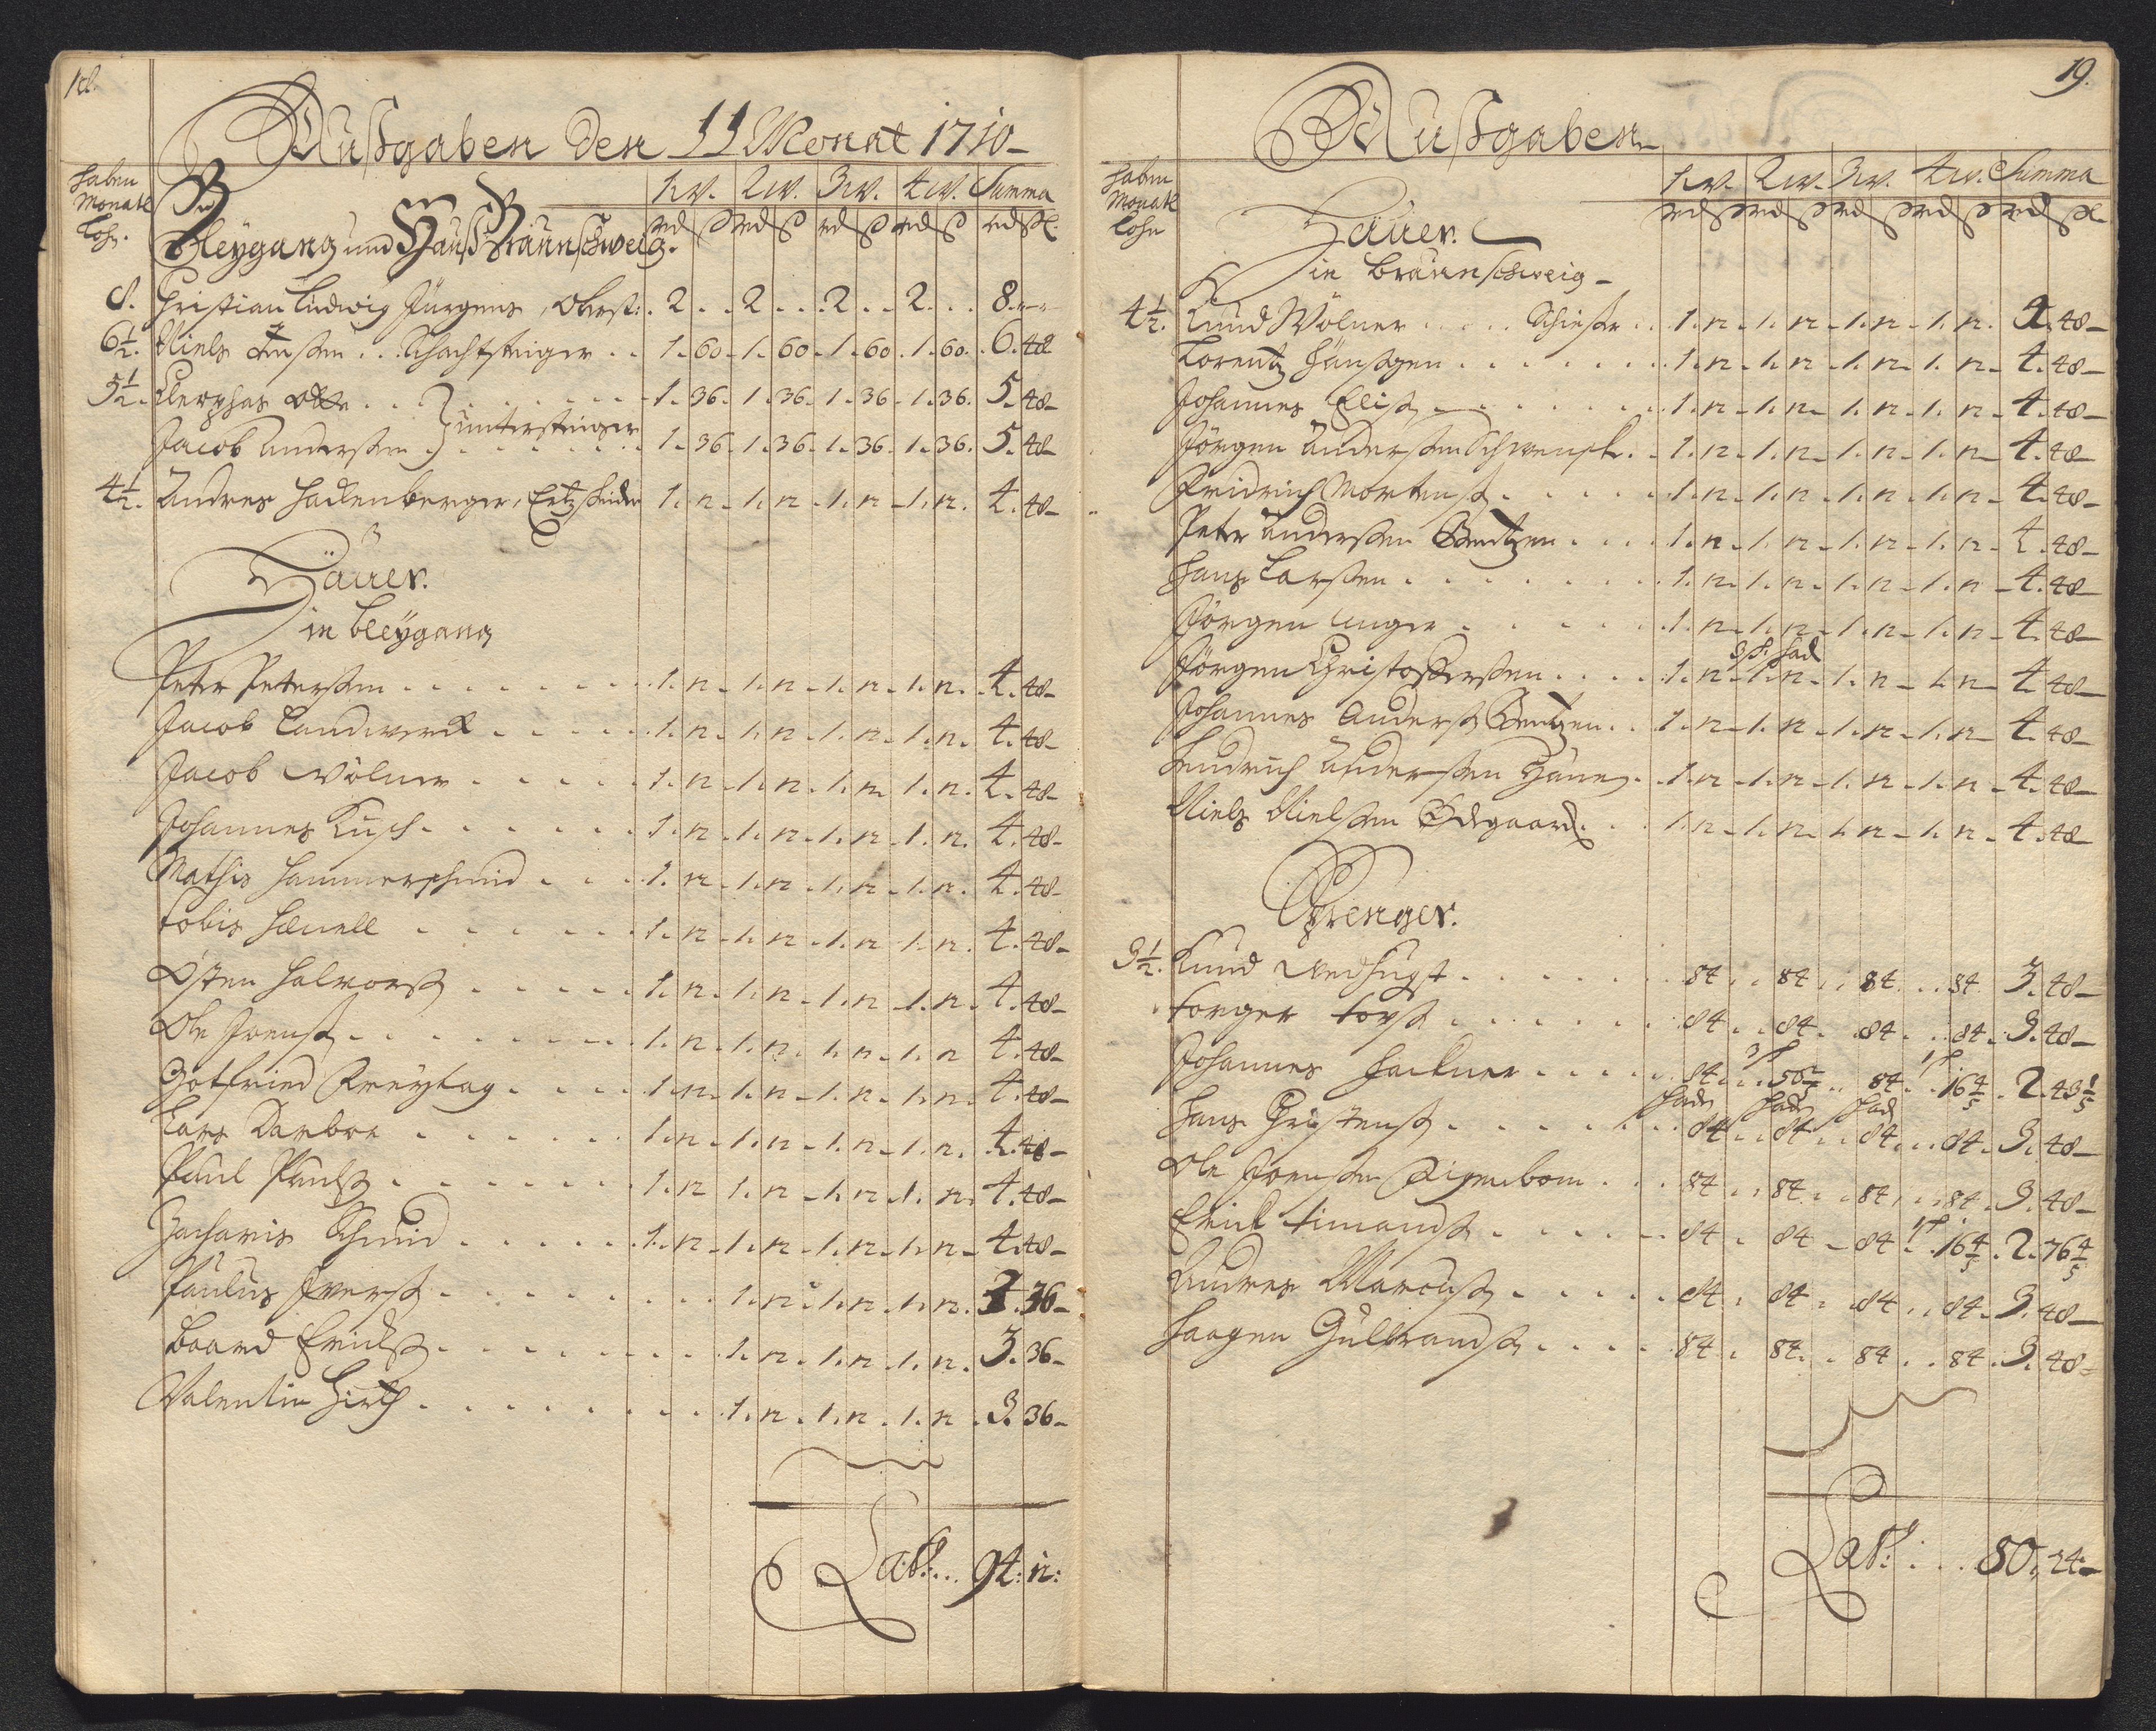 18.
Außgaben den 11 Monat 1710
haben Monatl Lohn.
1.W. 2.W. 3.W. 4.W. Summa
Bleygang und Hauß Braunschweig.
rd ß rd ß rd ß rd ß rd ß
8. Christian Ludwig Jürgens, Oberst: . 2 . . 2 . . 2 . . 2 . . 8.
6½. Niels Jenßen . . Schachtsteiger . . 1. 60. 1. 60. 1. 60. 1. 60. 6. 48
5½. Clerphas . . . 1. 36. 1. 36. 1. 36. 1. 36. 5. 48
untersteiger
Jacob Anderßen . . 1. 36. 1. 36. 1. 36. 1. 36. 5. 48
4½. Andres Hackenberger, Ertzscheider 1. 12. 1. 12. 1. 12. 1. 12. 4. 48
Häuer.
in Bleygang
Peter Peterßen . . . 1. 12. 1. 12. 1. 12. 1. 12. 4. 48
Jacob Landwerck . . . 1. 12. 1. 12. 1. 12. 1. 12. 4. 48
Jacob Wölner . . . 1. 12. 1. 12. 1. 12. 1. 12. 4. 48
Johannes Kusch . . . 1. 12. 1. 12. 1. 12. 1. 12. 4. 48
Mathis Hammerschmid . . . 1. 12. 1. 12. 1. 12. 1. 12. 4. 48
Tobis Hænell . . . 1. 12. 1. 12. 1. 12. 1. 12. 4. 48
Östen Halvorß . . . 1. 12. 1. 12. 1. 12. 1. 12. 4. 48
Ole Joenß . . . 1. 12. 1. 12. 1. 12. 1. 12 4. 48
Gotfried Freytag . . . 1. 12. 1. 12. 1. 12. 1. 12. 4. 48
Lars Darboe . . . 1. 12. 1. 12. 1. 12. 1. 12. 4. 48
Paul Paulß . . . 1. 12 1. 12. 1. 12. 1. 12. 4. 48
Zacharis Schmid . . . 1. 12. 1. 12. 1. 12. 1. 12. 4. 48
Paulus Iverß . . . 1. 12. 1. 12. 1. 12. 3. 36
Baard Erichß . . . 1. 12. 1. 12. 1. 12. 3. 36
Valentin Hirth . . . 1. 12. 1. 12. 1. 12. 3. 36
Lat: . . 94: 12:
19.
Außgaben
haben Monatl Lohn
1.W. 2.W. 3.W. 4.W. Summa
rd ß rd ß rd ß rd ß rd ß
Häuer.
in Braunschweig
4½. Knud Wölner . . . Schießer . . 1. 12. 1. 12. 1. 12. 1. 12. 4. 48
Lorentz Hänßgen . . . 1. 12. 1. 12. 1. 12. 1. 12. 4. 48
Johannes Eliß . . . 1. 12. 1. 12. 1. 12. 1. 12. 4. 48
Jörgen Anderßen Schwensk . . 1. 12. 1. 12. 1. 12. 1. 12. 4. 48
Fridrich Mortenß . . . 1. 12. 1. 12. 1. 12. 1. 12. 4. 48
Peter Anderßen Bentzen . . . 1. 12. 1. 12. 1. 12. 1. 12. 4. 48
Hans Larßen . . . 1. 12. 1. 12. 1. 12. 1. 12. 4. 48
Jörgen Unger . . . 1. 12. 1. 12. 1. 12. 1. 12. 4. 48
Jörgen Christofferßen . . . 1. 12. 1. 12. 1. 12. 1. 12. 4. 48
Johannes Anderß Bentzen . . 1. 12. 1. 12. 1. 12. 1. 12. 4. 48
Hendrich Anderßen . . 1. 12. 1. 12. 1. 12. 1. 12. 4. 48
Niels Nielßen Ödgaard . . . 1. 12. 1. 12. 1. 12. 1. 12. 4. 48
Sprenger.
3½. Knud . . . 84 . . 84 . . 84 . . 84. 3. 48
Torger Torß . . . 84 . . 84 . . 84 . . 84. 3. 48
Johannes Hackner . . . 84 . . 50 . . 84 . . 16 4/5 . 2. 43 1/5
Hans Christenß . . . 84 . . 84 . . 84 . . 84. 3. 48
Ole Joenßen . . . 84 . . 84 . . 84 . . 84. 3. 48
Erick Simondß . . . 84 . 84 . 84 . 16 4/5 . 2. 76 4/5
Andres Marcusß . . . 84 . 84 . 84 . . 84. 3. 48
Haagen Gulbrandß . . . 84 . 84 . . 84 . . 84. 3. 48
Lat: . . . 80. 24